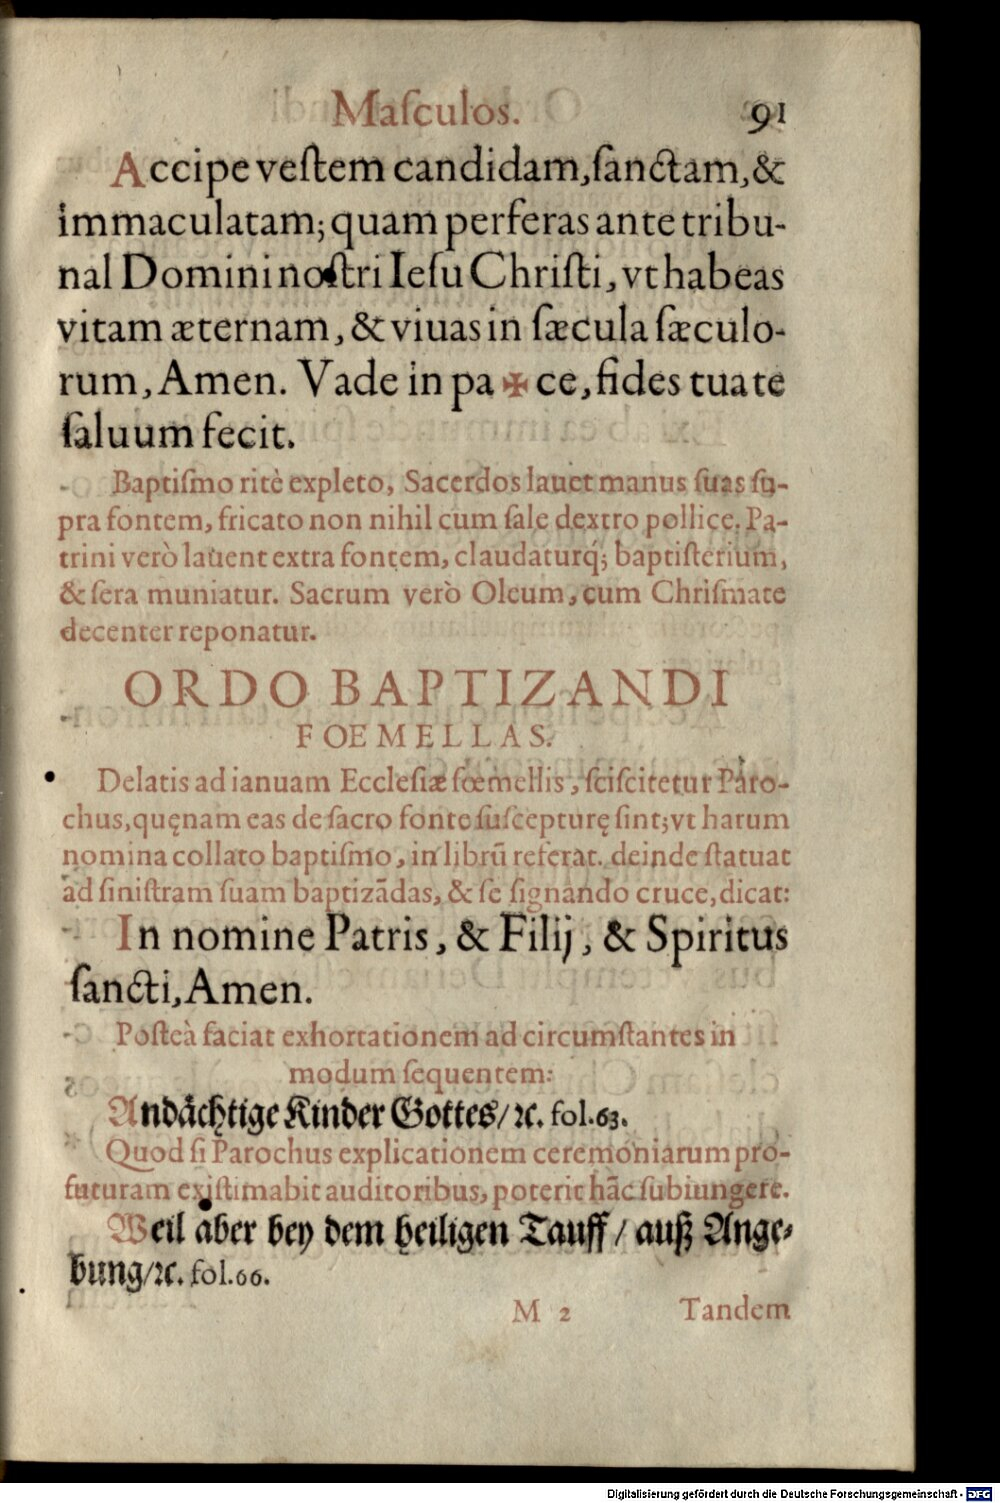 Maſculos. 91
Accipe veſtem candidam, ſanctam, &
immaculatam; quam perferas ante tribu-
nal Domini noſtri Ieſu Chriſti, vt habeas
vitam æternam, & viuas in ſæcula ſæculo-
rum, Amen. Vade in pa ✠ ce, fides tua te
ſaluum fecit.
Baptiſmo ritè expleto, Sacerdos lauet manus ſuas ſu-
pra fontem, fricato non nihil cum ſale dextro pollice. Pa-
trini verò lauent extra fontem, claudaturq́; baptiſterium,
& ſera muniatur. Sacrum verò Oleum, cum Chriſmate
decenter reponatur.
ORDO BAPTIZANDI
FOEMELLAS.
Delatis ad ianuam Eccleſiæ fœmellis, ſciſcitetur Paro-
chus, quęnam eas de ſacro fonte ſuſcepturę ſint; vt harum
nomina collato baptiſmo, in librũ referat. deinde ſtatuat
ad ſiniſtram ſuam baptizãdas, & ſe ſignando cruce, dicat:
In nomine Patris, & Filij, & Spiritus
ſancti, Amen.
Poſteà faciat exhortationem ad circumſtantes in
modum ſequentem:
Andächtige Kinder Gottes/ ꝛc. fol. 63.
Quod ſi Parochus explicationem ceremoniarum pro-
futuram exiſtimabit auditoribus, poterit hãc ſubiungere.
Weil aber bey dem heiligen Tauff / auß Ange-
bung/ ꝛc. fol. 66.
M 2 Tandem
Digitalisierung gefördert durch die Deutsche Forschungsgemeinschaft - DFG